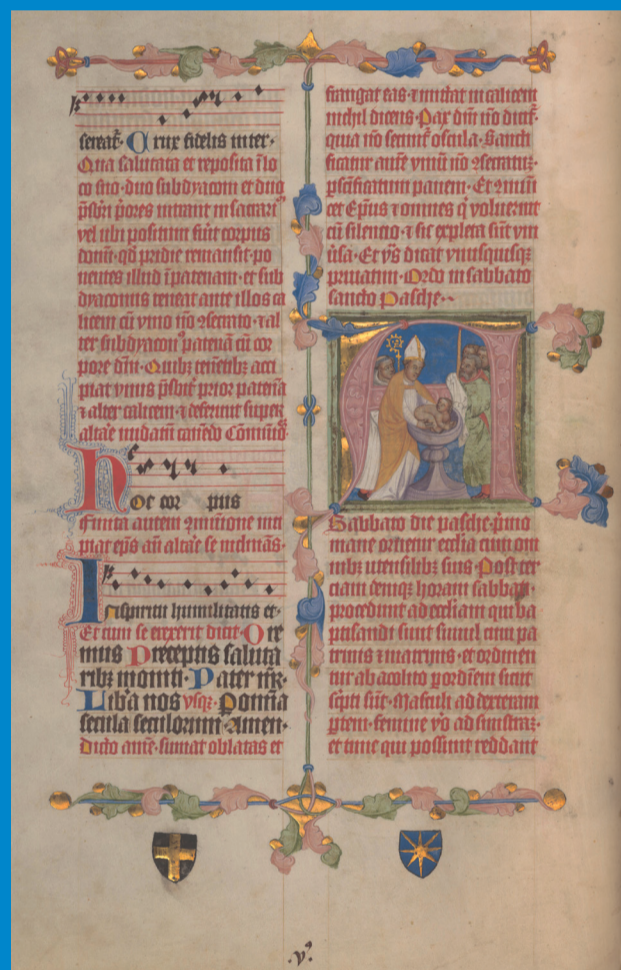 seretur. Crux fidelis inter.
Qua salutata et reposita
co suo. duo subdyaconi et duo
intrant in
vel ubi positum fuit corpus
qd pridie remansit. po
nentes illud et sub
dyaconus teneat ante illos ca
licem cū vino nō ɔsecrato. al
ter subdyaconus patenā cū cor
pore dnī.
piat vnus prior patenā
alter calicem. deferunt super
altare
Hoc cor pus
finita autem inci
piat eps an altare se inclinās.
In spiritu humilitatis et.
Et cum se erexerit dicat. Ore
mus Preceptis saluta
ribꝫ moniti. Pater nr̄.
Libā nos vsqꝫ. Per omnia
secula seculorum. Amen.
sumat oblatas et
frangat eas. mittat in calicem
nichil dicens. Pax dnī nō
quia nō oscula. Sancti
ficatur vinū nō ɔsecratū.
panem. Et
cet Epūs omnes q voluerint
cū silencio. sic expleta sūt
Et dicat vnusquisqꝫ
priuatim. Ordo in sabbato
sancto Pasche.
Sabbato die pasche.
mane ornetur ecclia cum om
nibꝫ utensilibꝫ suis. Post ter
ciam horam sabbati.
procedunt ad eccliam qui ba
ptisandi sunt simul cum pa
trinis matrinis. et ordinen
tur ab acolito per ordinem sicut
scpti sūt. Masculi ad dexteram
ptem. femine vo ad sinistrā.
et tunc qui possunt reddant
.v.